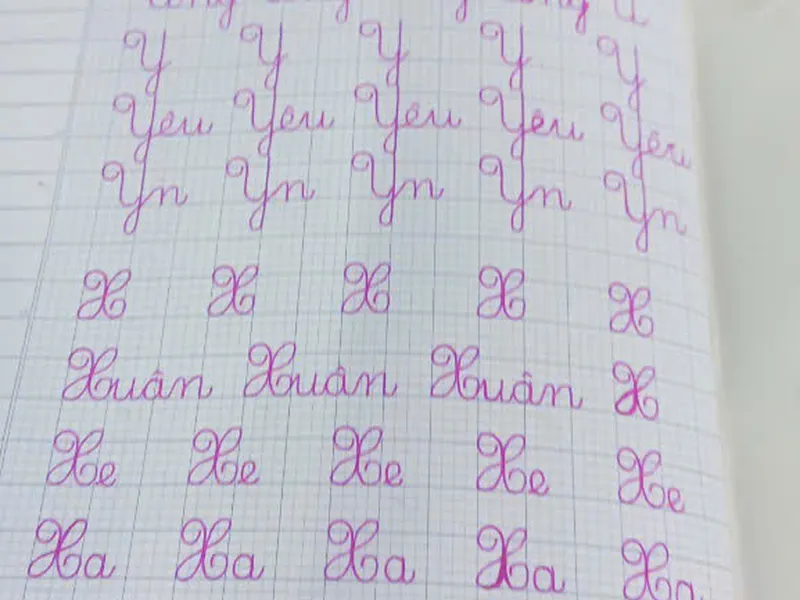 Y Y Y Y Y
Yêu Yêu Yêu Yêu Yêu
Yn Yn Yn Yn Yn
X X X X X
Xuân Xuân Xuân X
Xe Xe Xe Xe Xe
Xa Xa Xa Xa Xa